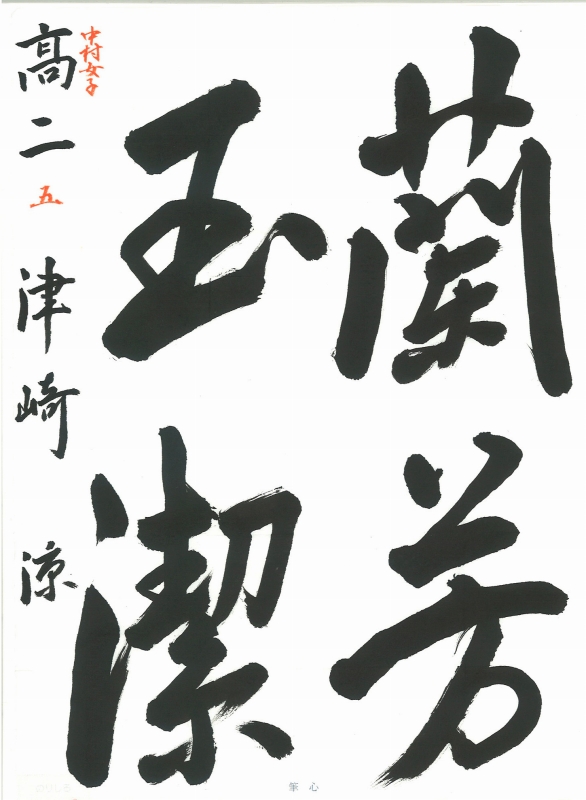 蘭芳
玉潔
中村女子
高二 五 津崎 涼
心筆